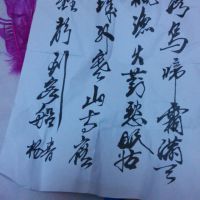 落烏啼霜滿天
楓漁火對愁眠姑
城外寒山寺夜
鐘聲到客船